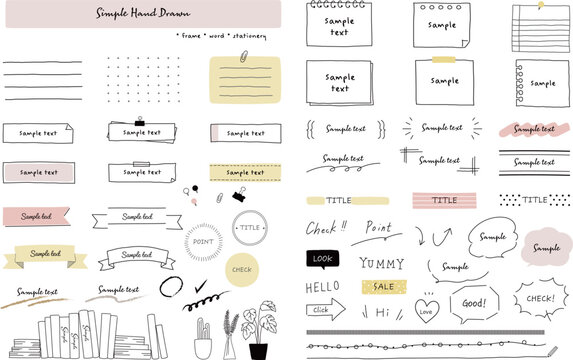 Simple Hand Drawn
* frame * word * stationery
Sample text
Sample text
Sample text
Sample text
Sample text
Sample text
Sample text
Sample text
Sample text
Sample text
Sample text
Sample text
Sample text
POINT
TITLE
CHECK
Sample text
Sample text
Sample
text
Sample
text
Sample
text
Sample
text
Sample
text
Sample text
Sample text
Sample text
Sample text
Sample text
Sample text
TITLE
TITLE
TITLE
Check!!
Point
Sample
Sample
LOOK
YUMMY
Sample
HELLO
SALE
Click
Hi
Love
Good!
CHECK!